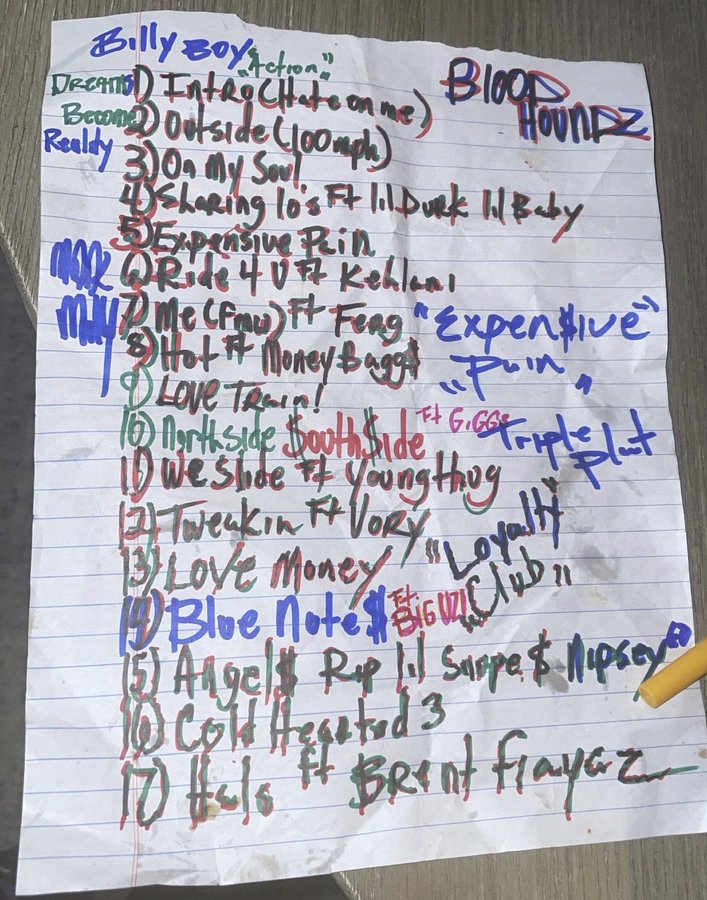 Billy Boy "Action"
Blood
Houndz
Dreams
Become
Realdy
1) Intro (Hate on me)
2) Outside (100mph)
3) On My Soul
4) Sharing lo's Ft lil Durk lil Baby
5) Expensive Pain
6) Ride 4 U Ft Kehlani
7) Me (Fmw) Ft Ferg
8) Hot Ft MoneyBagg$
9) Love Train!
10) Northside $outh$ide Ft GiGGs
11) We Slide Ft Young thug
12) Tweakin Ft Vory
13) Love Money
14) Blue Note$ Ft. BiG UZI
15) Angel$ Rip lil Snupe$ Nipsey
16) Cold Hearted 3
17) Halo ft Brent fiayaz
Meek
Milly
"Expen$ive"
"Pain"
Triple Plat
"Loyalty
Club"